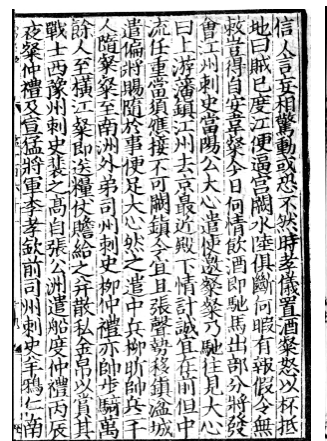 信人言妄相驚動或恐不然時孝儀置酒粲怒以杯抵
地曰賊已度江便逼宮闕水陸俱斷何暇有報假令無
敕豈得自安韋粲今日何情飲酒即馳馬出部分將發
會江州刺史當陽公大心遣使邀粲粲乃馳往見大心
曰上游藩鎮江州去京最近殿下情計誠宜在前但中
流任重當須應接不可闕鎮今宜且張聲勢移鎮湓城
遣偏將賜隨於事便足大心然之遣中兵柳昕帥兵千
人隨粲粲至南洲外弟司州刺史柳仲禮亦帥步騎萬
餘人至橫江粲即送糧仗贍給之并散私金帛以賞其
戰士西豫州刺史裴之高自張公洲遣船度仲禮丙辰
夜粲仲禮及宣猛將軍李孝欽前司州刺史羊鴉仁南